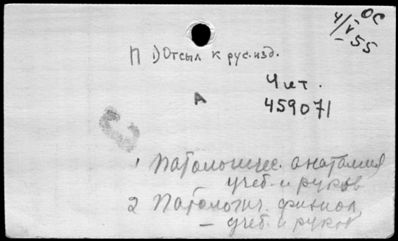 ОС
4/V 55
П 1) Отсыл к рус. изд.
Чит.
А
459071
1 Патологичес. анатомия
учеб. и руков
2 Патологич. физиол
– учеб. и руков